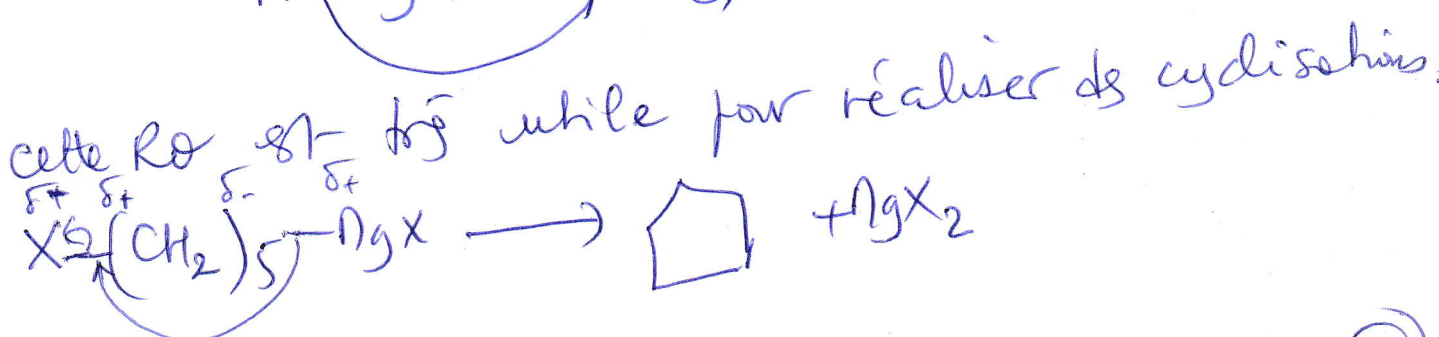 cette RΘ est très utile pour réaliser des cyclisations.
δ+ δ+ δ- δ+
X-(CH2)5-MgX → +MgX2